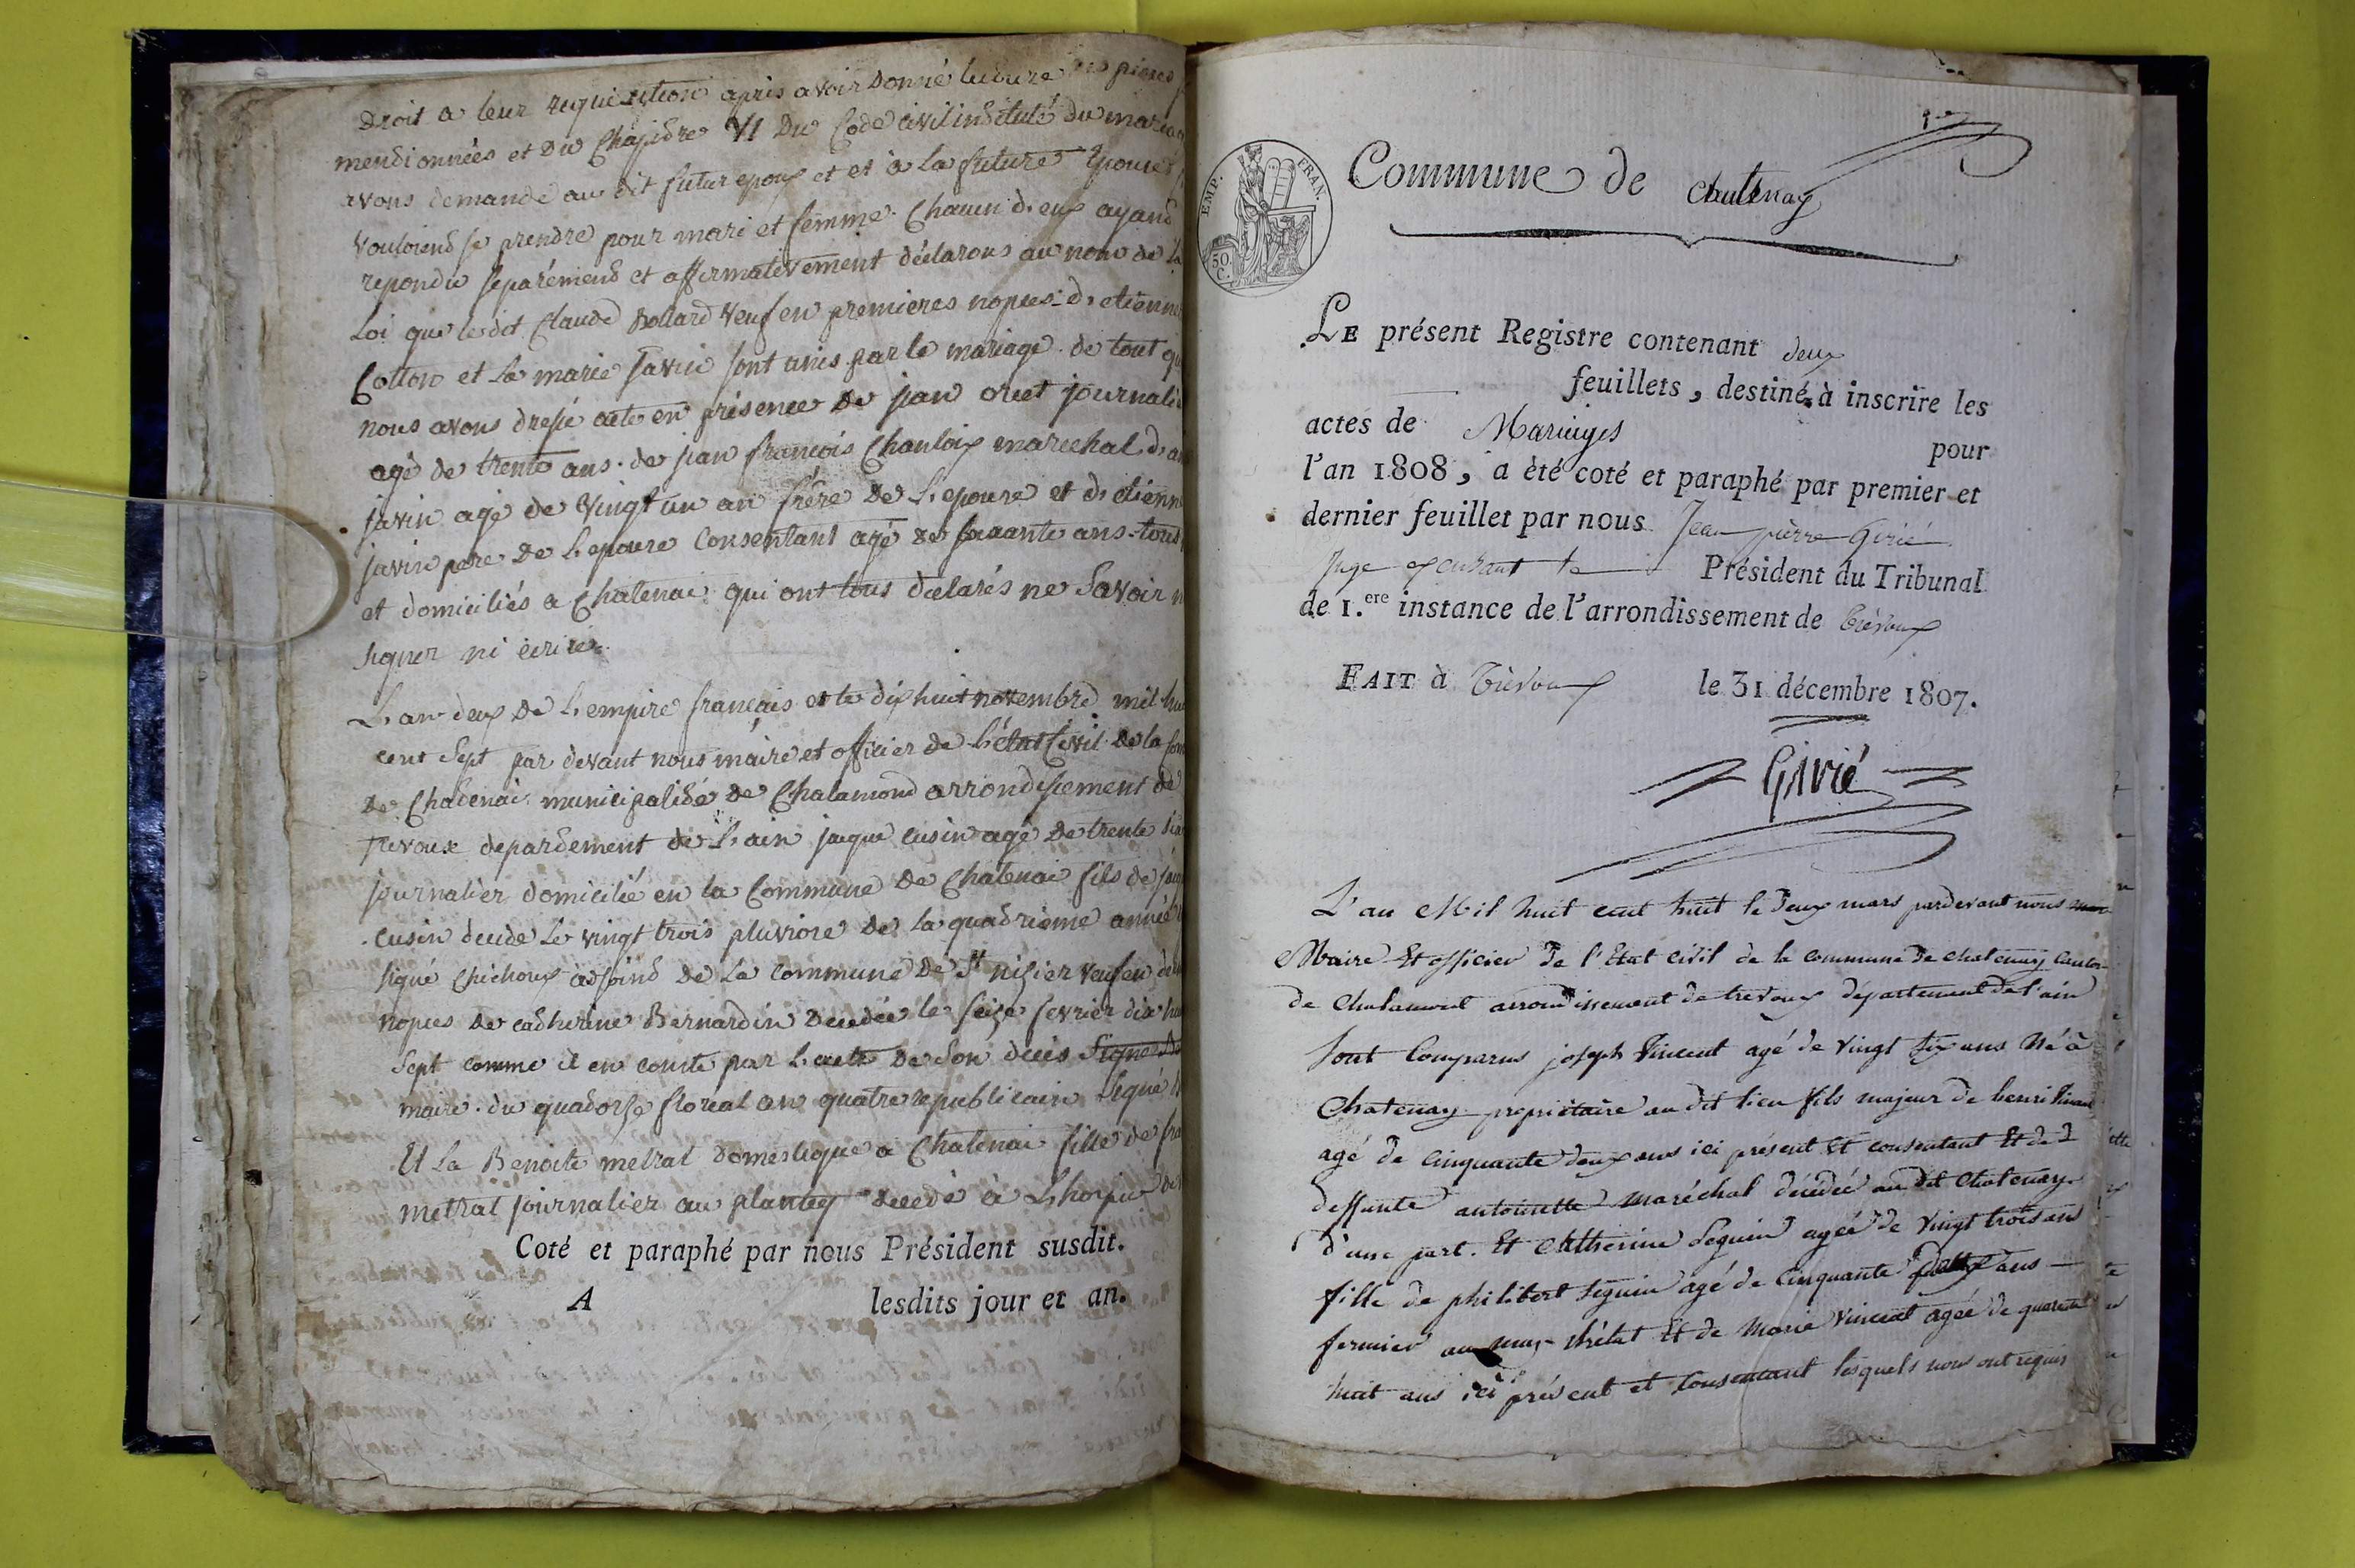 Droit a leur requisition apris avoir Donné lecture des pieces
mendionnées et Du Chapidre VI Du Code civil inditulé du mariag
avons demandé au dit futur epoux et et à la future Epouse
vouloiend se prendre pour mari et femme. Chacun d. eux ayand
repondu separémend et affirmativement déclarons au nom de la
Loi que ledit Claude Bollard veuf en premieres nopces d. etienne
Cotton et la marie Javin sont unis par le mariage. de tout
nous avons dressé acte en présence de jean oret journalie
agé de trente ans. de jean françois Chauloix marechal d.
javin agé de vingt un an frére de L. epouse et d. etienn
javin pere de L. epouse Consentant agé de soixante ans. tous
et domiciliés a Chatenai qui ont tous declarés ne Savoir
signer ni ecrire.
L. an deux de L. empire français et le dix huit novembre mil hui
cent Sept par devant nous maire et officier de L. état Civil de la
de Chadenai municipalidé de Chalamond arrondissement de
Trevoux depardement de L. ain jaque cusin agé de trente
journalier domicilié en la Commune de Chatenai fils de
cusin decidé le vingt trois pluviose de la quadrieme année
signé Chichoux adjoind de la commune de St nizier veuf en
nopces de cadherine Bernardin decedée le seize fevrier dix hui
Sept comme il en conste par L. acte de son deces Signe
maire. du quadorze floreal an quatre republicain Signé
Et la Benoite metral domestique a Chatenai fille de fra
metral journalier au plantey decedé à L. hospice
Coté et paraphé par nous Président susdit.
A lesdits jour et an.
EMP. FRAN.
50. C.
Commune de Chatenay
LE présent Registre contenant deux
feuillets, destiné à inscrire les
actes de Mariages pour
l'an 1808, a été coté et paraphé par premier et
dernier feuillet par nous Jean pierre Girié
Juge exerçant le Président du Tribunal
de 1.ere instance de l'arrondissement de Trévoux
FAIT à Trévoux le 31 décembre 1807.
Girié
L'an Mil huit cent huit le deux mars pardevant nous
Maire Et officier de l'Etat civil de la commune de chatenay canton
de Chalamont arrondissement de trevoux département de l'ain
Sont Comparus joseph Vincent agé de vingt six ans Né à
Chatenay propriétaire au dit lieu fils majeur de henri Vincent
agé de cinquante deux ans ici présent Et consentant Et de
deffunte antoinette Maréchal décédée au dit Chatenay
d'une part. Et Catherine Seguin agée de vingt trois ans
fille de philibert Seguin agé de Cinquante ans
fermier au Et de Marie Vincent agée de quarente
huit ans ici présent et Consentant lesquels nous ont requis